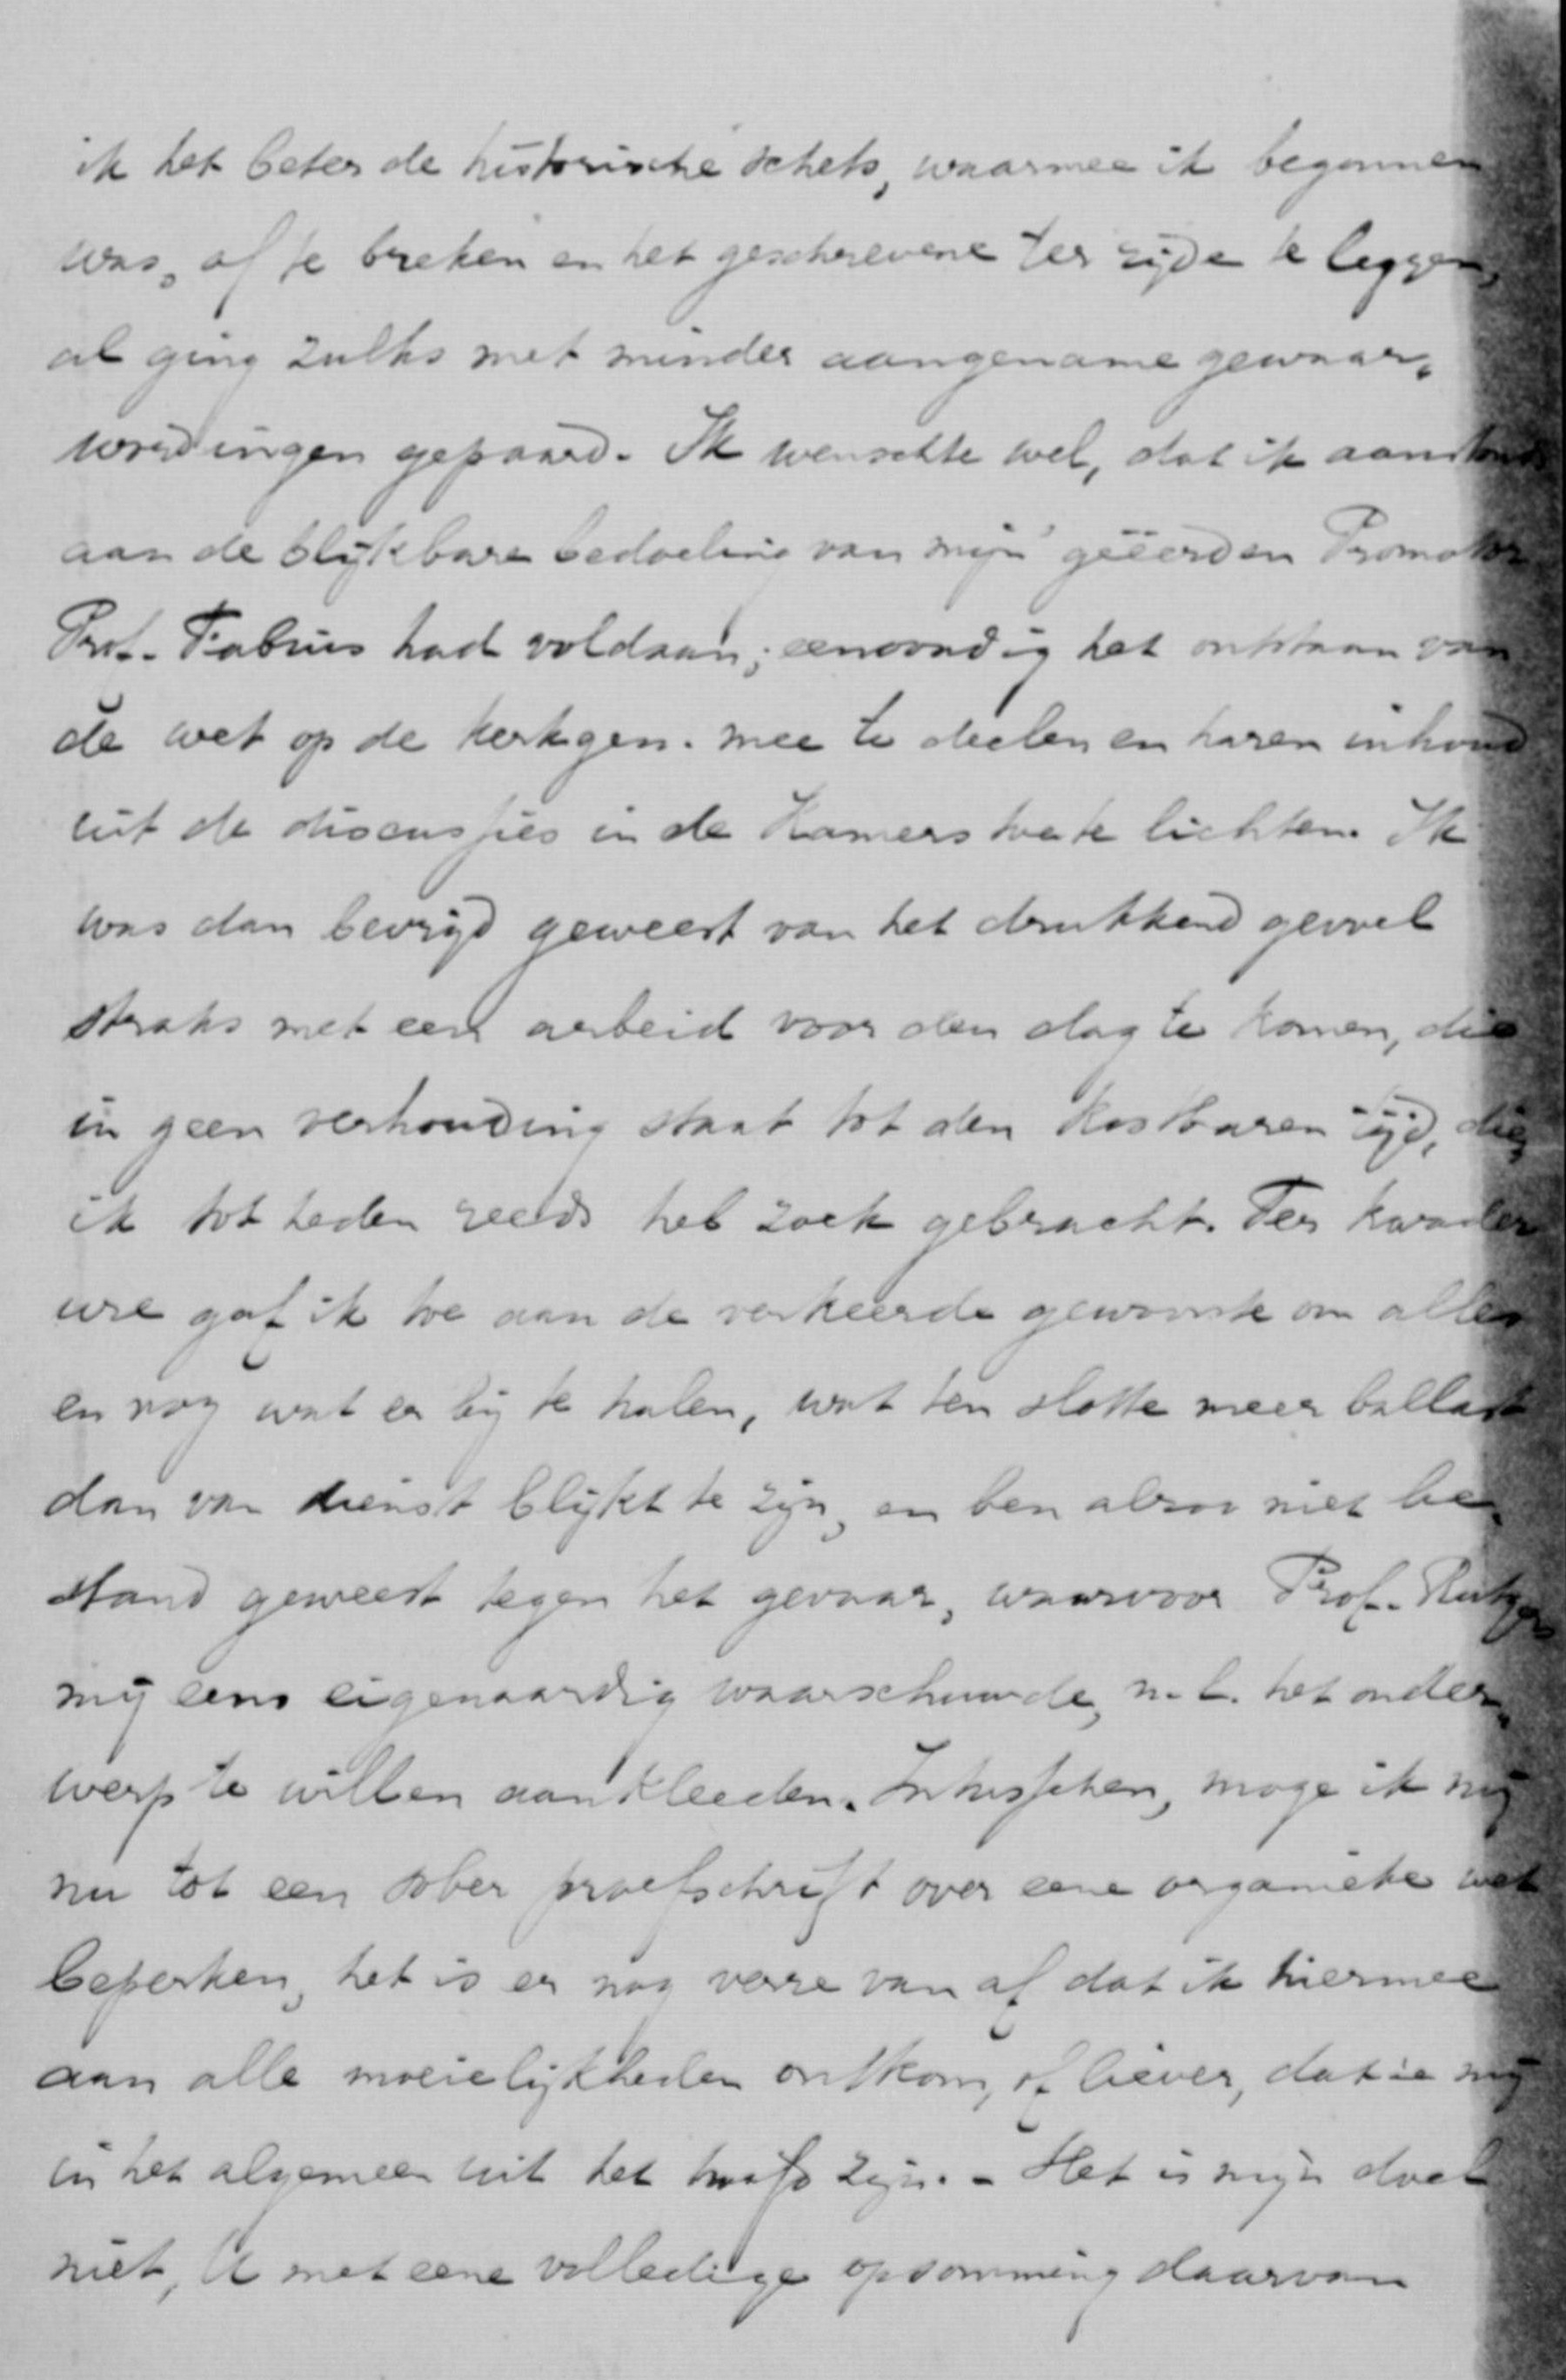 ik het beter de historische schets, waarmee ik begonnen
was, af te breken en het geschrevene ter zijde te leggen,
al ging zulks met minder aangename gewaar„
wordingen gepaard. Ik wenschte wel, dat ik aanstonds
aan de blijkbare bedoeling van mijn geëerden Promotor
Prof. Fabius had voldaan; eenvoudig het ontstaan van
de wet op de kerkgen. mee te deelen en haren inhoud
uit de discussies in de Kamers toe te lichten. Ik
was dan bevrijd geweest van het drukkend gevoel
straks met een arbeid voor den dag te komen, die
in geen verhouding staat tot den kostbaren tijd, dien
ik tot heden reeds heb zoek gebracht. Ter kwader
ure gaf ik toe aan de verkeerde gewoonte om alles
en nog wat er bij te halen, wat ten slotte meer ballast
dan van dienst blijkt te zijn, en ben alzoo niet be„
stand geweest tegen het gevaar, waarvoor Prof. Rutgers
mij eens eigenaardig waarschuwde, n.l. het onder„
werp te willen aankleeden. Intusschen, moge ik mij
nu tot een sober proefschrift over eene organieke wet
beperken, het is er nog verre van af dat ik hiermee
aan alle moeielijkheden ontkom, of liever, dat ie mij
in het algemeen uit het hoofd zijn. – Het is mijn doel
niet, U met eene volledige opsomming daarvan